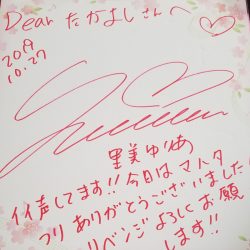 Dear たかよしさんへ
2019
10.27
里美ゆりあ
イイ声してます!!今日はマハタ
フリありがとうございました
リベンジよろしくお願
します!!